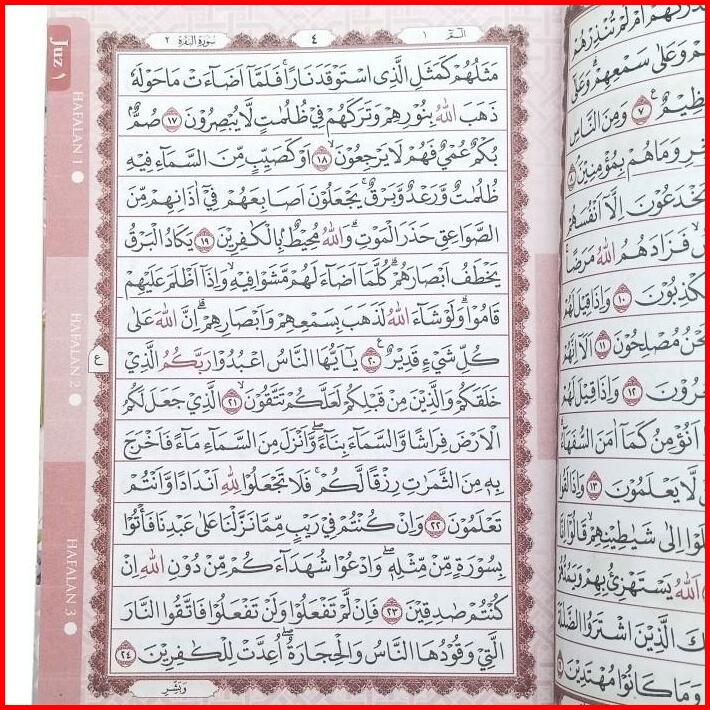 الٓمّ ١
٤
سورة البقرة ٢
مَثَلُهُمْ كَمَثَلِ الَّذِى اسْتَوْقَدَ نَارًا ۚ فَلَمَّآ اَضَاۤءَتْ مَا حَوْلَهٗ
ذَهَبَ اللّٰهُ بِنُوْرِهِمْ وَتَرَكَهُمْ فِيْ ظُلُمٰتٍ لَّا يُبْصِرُوْنَ ١٧ صُمٌّۢ
بُكْمٌ عُمْيٌ فَهُمْ لَا يَرْجِعُوْنَ ۙ ١٨ اَوْ كَصَيِّبٍ مِّنَ السَّمَاۤءِ فِيْهِ
ظُلُمٰتٌ وَّرَعْدٌ وَّبَرْقٌ ۚ يَجْعَلُوْنَ اَصَابِعَهُمْ فِيْٓ اٰذَانِهِمْ مِّنَ
الصَّوَاعِقِ حَذَرَ الْمَوْتِ ۗ وَاللّٰهُ مُحِيْطٌۢ بِالْكٰفِرِيْنَ ١٩ يَكَادُ الْبَرْقُ
يَخْطَفُ اَبْصَارَهُمْ ۗ كُلَّمَآ اَضَاۤءَ لَهُمْ مَّشَوْا فِيْهِ ۙ وَاِذَآ اَظْلَمَ عَلَيْهِمْ
قَامُوْا ۗ وَلَوْ شَاۤءَ اللّٰهُ لَذَهَبَ بِسَمْعِهِمْ وَاَبْصَارِهِمْ ۗ اِنَّ اللّٰهَ عَلٰى
كُلِّ شَيْءٍ قَدِيْرٌ ࣖ ٢٠ يٰٓاَيُّهَا النَّاسُ اعْبُدُوْا رَبَّكُمُ الَّذِيْ
خَلَقَكُمْ وَالَّذِيْنَ مِنْ قَبْلِكُمْ لَعَلَّكُمْ تَتَّقُوْنَ ۙ ٢١ الَّذِيْ جَعَلَ لَكُمُ
الْاَرْضَ فِرَاشًا وَّالسَّمَاۤءَ بِنَاۤءً ۖ وَّاَنْزَلَ مِنَ السَّمَاۤءِ مَاۤءً فَاَخْرَجَ
بِهٖ مِنَ الثَّمَرٰتِ رِزْقًا لَّكُمْ ۚ فَلَا تَجْعَلُوْا لِلّٰهِ اَنْدَادًا وَّاَنْتُمْ
تَعْلَمُوْنَ ٢٢ وَاِنْ كُنْتُمْ فِيْ رَيْبٍ مِّمَّا نَزَّلْنَا عَلٰى عَبْدِنَا فَأْتُوْا
بِسُوْرَةٍ مِّنْ مِّثْلِهٖ ۖ وَادْعُوْا شُهَدَاۤءَكُمْ مِّنْ دُوْنِ اللّٰهِ اِنْ
كُنْتُمْ صٰدِقِيْنَ ٢٣ فَاِنْ لَّمْ تَفْعَلُوْا وَلَنْ تَفْعَلُوْا فَاتَّقُوا النَّارَ
الَّتِيْ وَقُوْدُهَا النَّاسُ وَالْحِجَارَةُ ۖ اُعِدَّتْ لِلْكٰفِرِيْنَ ٢٤
وَبَشِّرِ
ع
Juz ١
HAFALAN 1
HAFALAN 2
HAFALAN 3
اَمْ لَمْ تُنْذِرْهُمْ
وَعَلٰى سَمْعِهِمْ ۗ وَعَلٰٓى
٧ وَمِنَ النَّاسِ
وَمَا هُمْ بِمُؤْمِنِيْنَ ۘ
يَخْدَعُوْنَ اِلَّآ اَنْفُسَهُمْ
فَزَادَهُمُ اللّٰهُ مَرَضًا ۚ
يَكْذِبُوْنَ ١٠ وَاِذَا قِيْلَ لَهُمْ
نَحْنُ مُصْلِحُوْنَ ١١ اَلَآ اِنَّهُمْ
١٢ وَاِذَا قِيْلَ لَهُمْ
اَنُؤْمِنُ كَمَآ اٰمَنَ السُّفَهَاۤءُ ۗ
لَّا يَعْلَمُوْنَ ١٣ وَاِذَا لَقُوا
اِلٰى شَيٰطِيْنِهِمْ ۙ قَالُوْٓا اِنَّا
اَللّٰهُ يَسْتَهْزِئُ بِهِمْ
الَّذِيْنَ اشْتَرَوُا الضَّلٰلَةَ
وَمَا كَانُوْا مُهْتَدِيْنَ